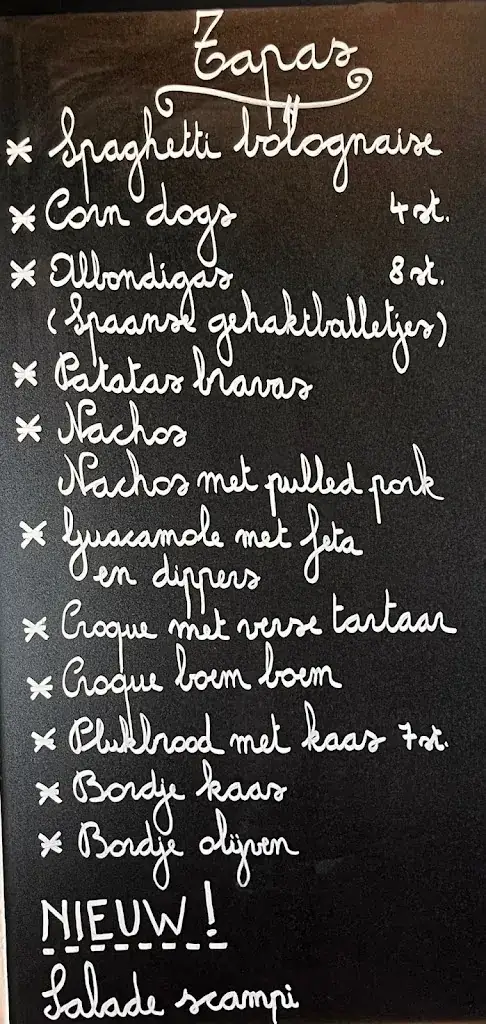 Tapas
* Spaghetti bolognaise
* Corn dogs 4 st.
* Albondigas 8 st.
(Spaanse gehaktballetjes)
* Patatas bravas
* Nachos
Nachos met pulled pork
* Guacamole met feta
en dippers
* Croque met verse tartaar
* Croque boem boem
* Plukbrood met kaas 7 st.
* Bordje kaas
* Bordje olijven
NIEUW!
Salade scampi